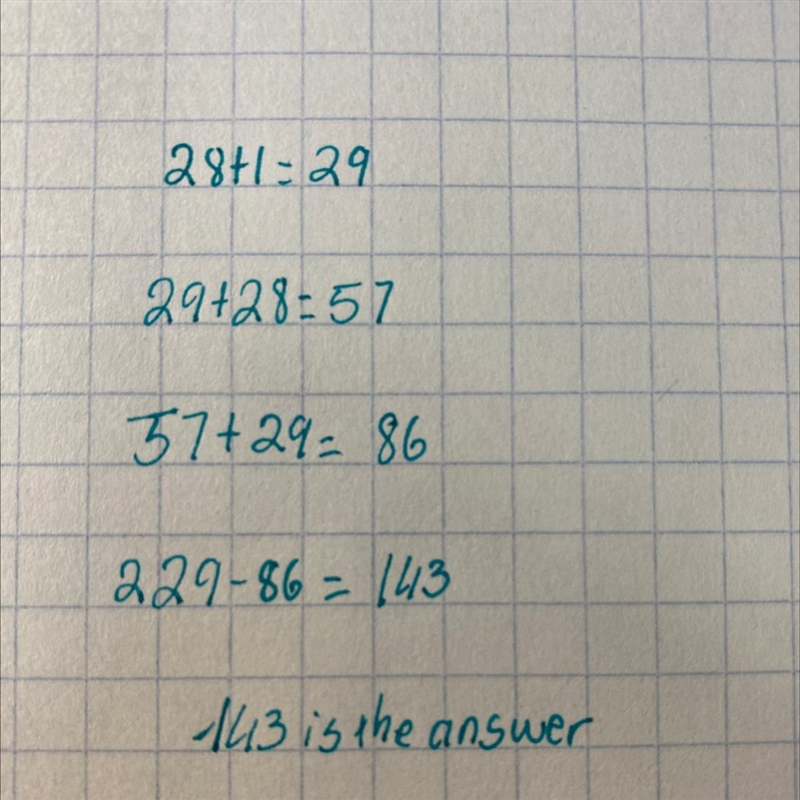 28+1=29
29+28=57
57+29= 86
229-86 = 143
-143 is the answer